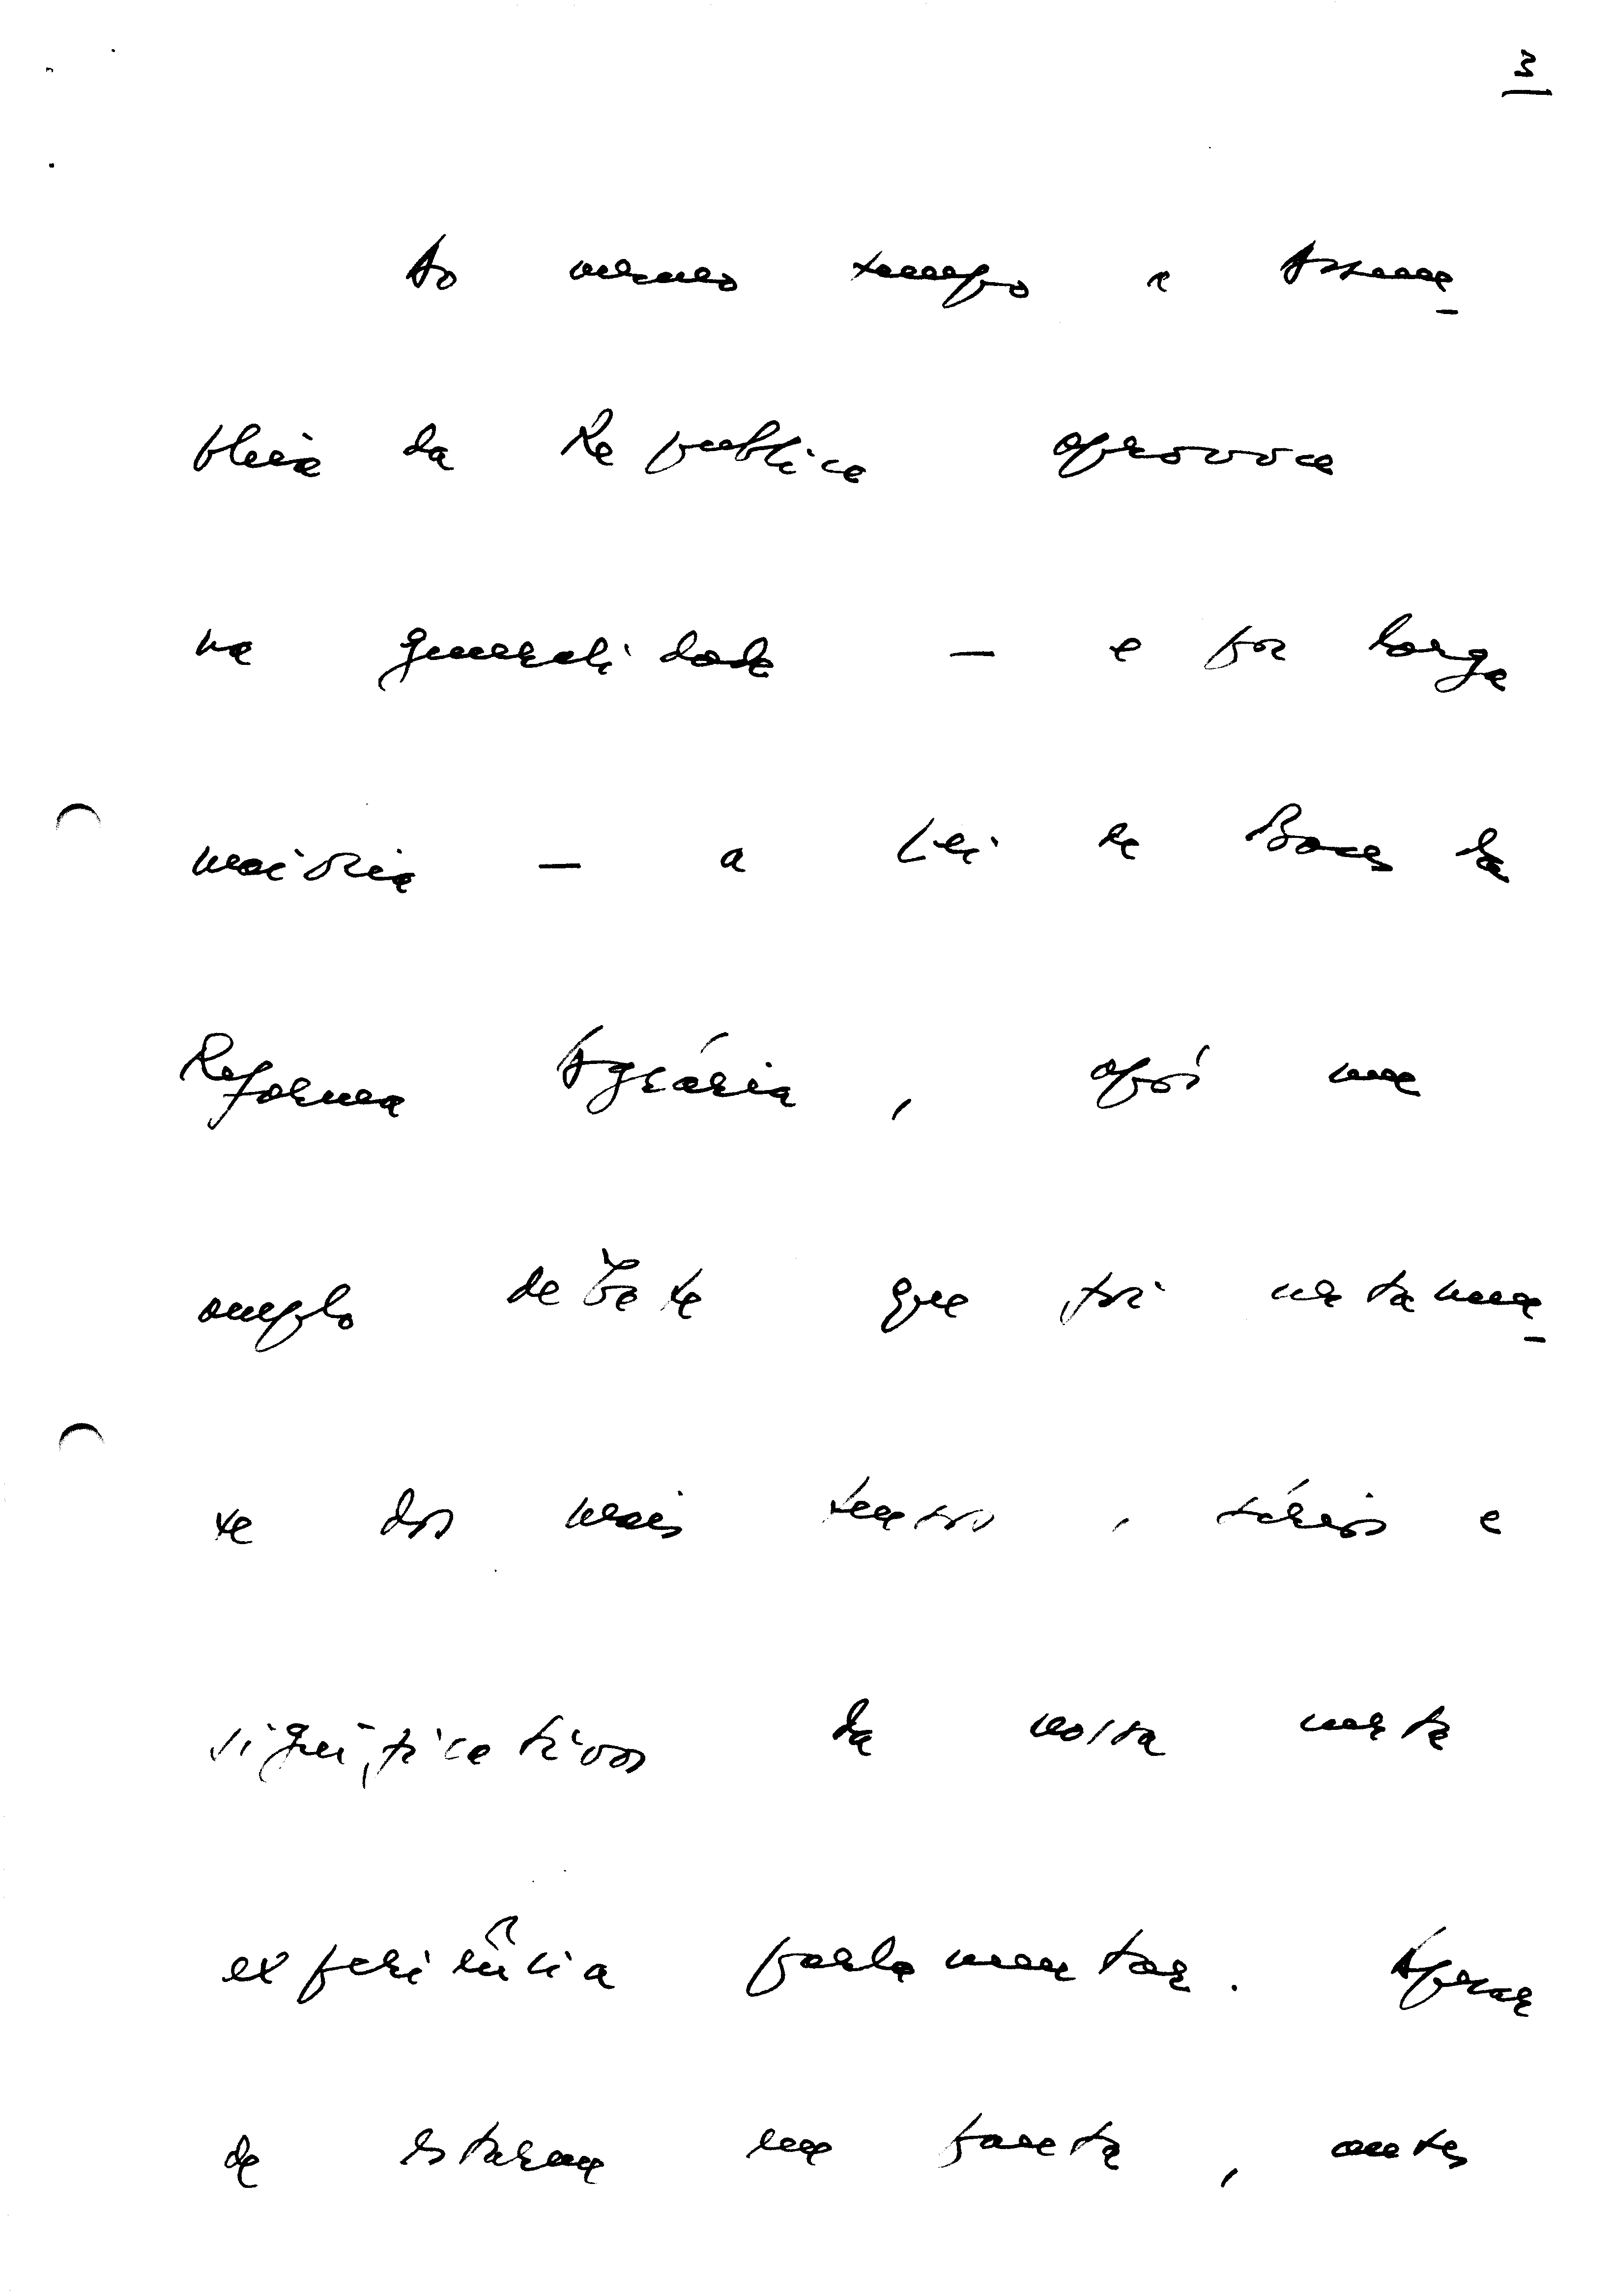 3
Ao mesmo tempo a Assem-
bleia da Republica aprovou
na generalidade — e por larga
maioria — a Lei de Bases da
Reforma Agrária, após um
amplo debate que foi certamen-
te dos mais tensos, sérios e
significativos da nossa curta
experiência parlamentar. Apesar
de estarem em pauta, antes